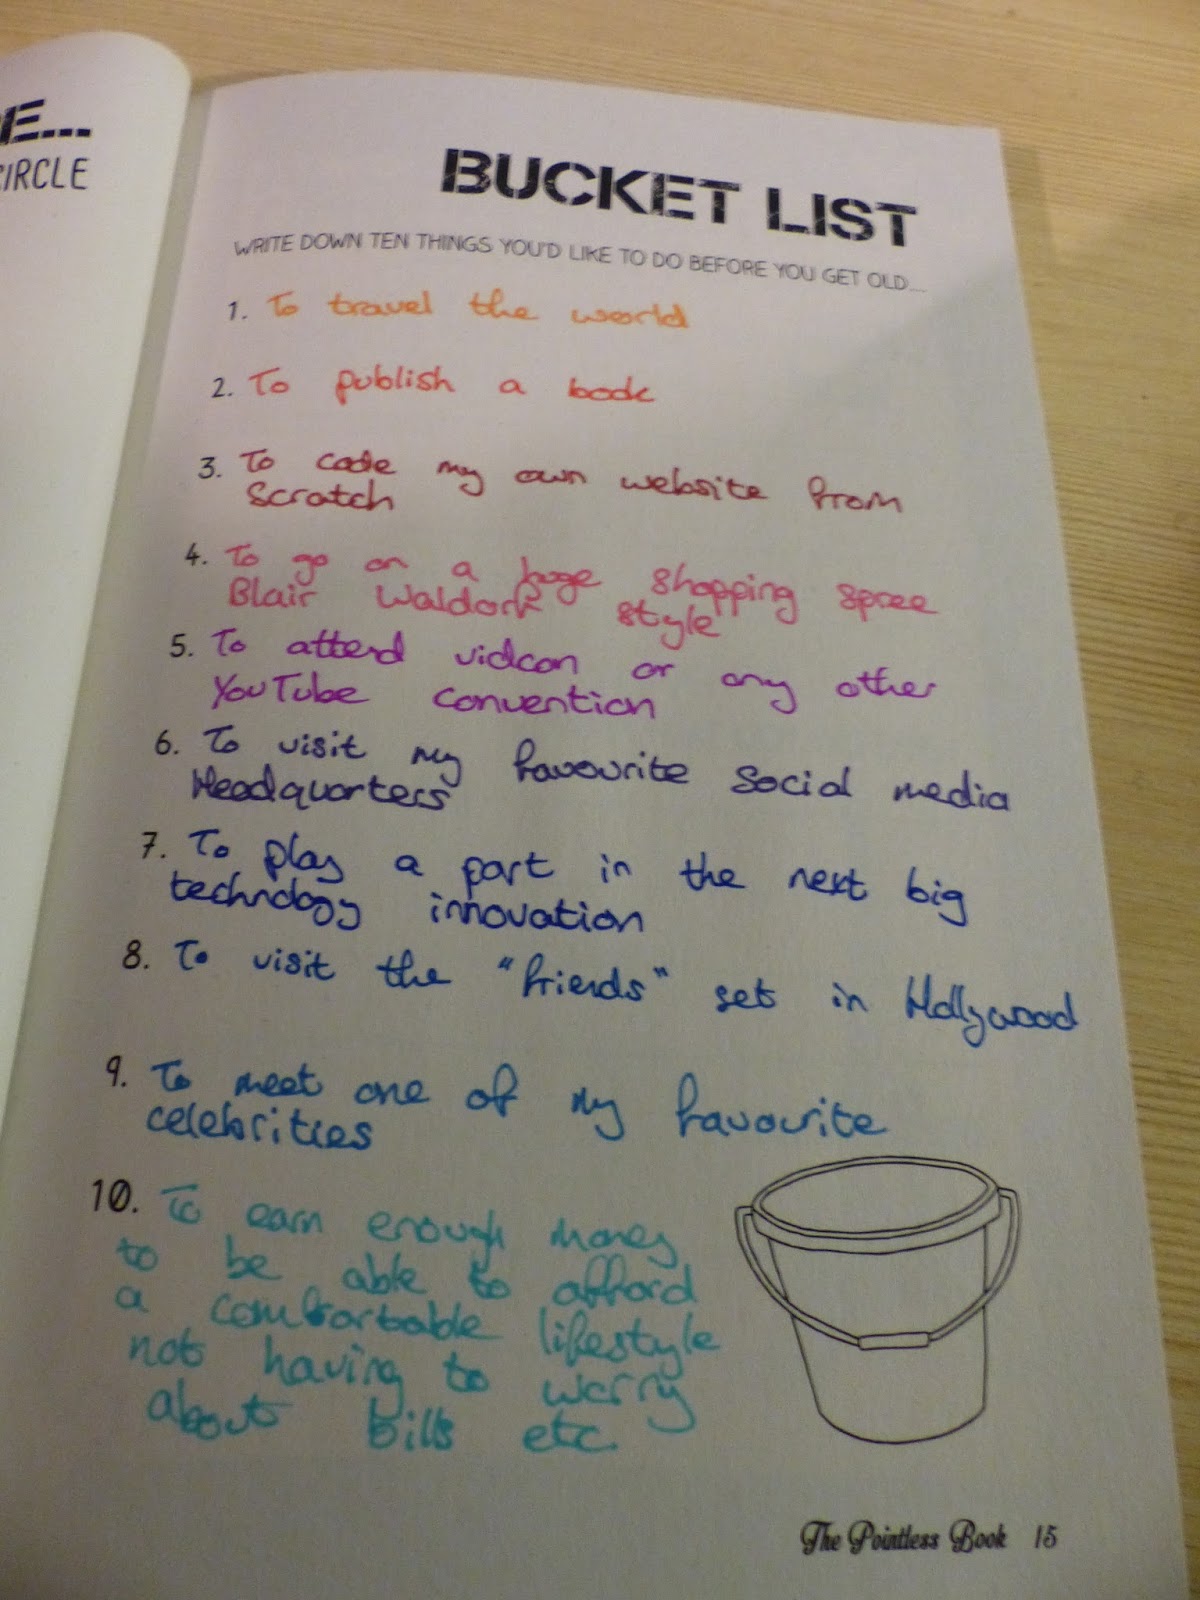 E...
CIRCLE
BUCKET LIST
WRITE DOWN TEN THINGS YOU'D LIKE TO DO BEFORE YOU GET OLD....
1. To travel the world
2. To publish a book
3. To code my own website from
Scratch
4. To go on a huge shopping spree
Blair Waldorf style
5. To attend vidcon or any other
YouTube convention
6. To visit my favourite social media
Headquarters
7. To play a part in the next big
technology innovation
8. To visit the "friends" set in Hollywood
9. To meet one of my favourite
celebrities
10. To earn enough money
to be able to afford
a comfortable lifestyle
not having to worry
about bills etc.
The Pointless Book 15